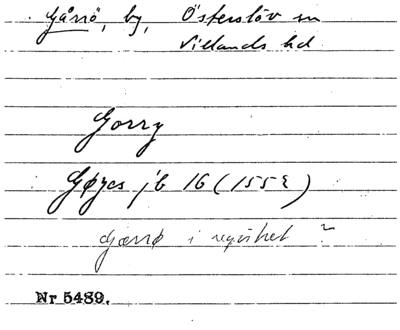 Gårrö, by, Österslöv sn
Villands hd
Gorry
Gøyes jb 16 (1552)
Gærrø i registret
Nr 5489.